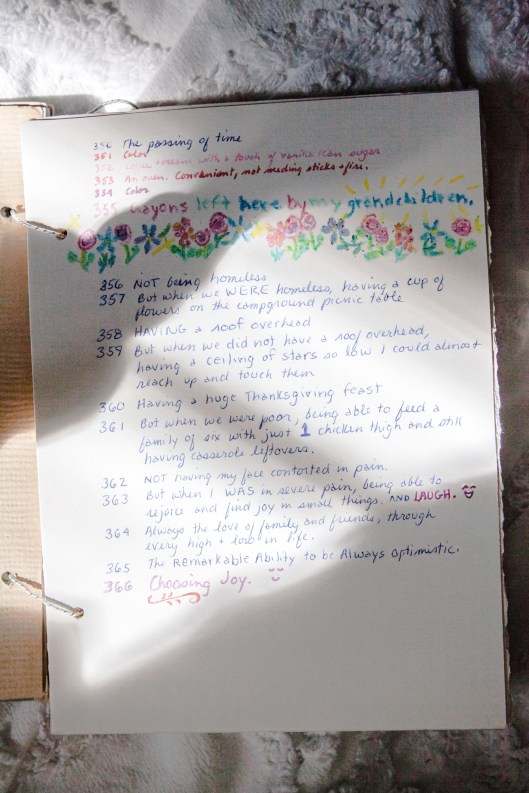 356 The passing of time
351 Color
352 ice cream with a touch of vanilla bean sugar
353 An oven. Convenient, not needing sticks + fire.
354 Color
355 crayons left here by my grandchildren.
356 NOT being homeless
357 But when we WERE homeless, having a cup of
flowers on the campground picnic table
358 HAVING a roof overhead
359 But when we did not have a roof overhead,
having a ceiling of stars so low I could almost
reach up and touch them
360 Having a huge Thanksgiving feast
361 But when we were poor, being able to feed a
family of six with just 1 chicken thigh and still
having casserole leftovers.
362 NOT having my face contorted in pain.
363 But when I WAS in severe pain, being able to
rejoice and find joy in small things. AND LAUGH.
364 Always the love of family and friends, through
every high + low in life.
365 The Remarkable Ability to be Always optimistic.
366 Choosing Joy.